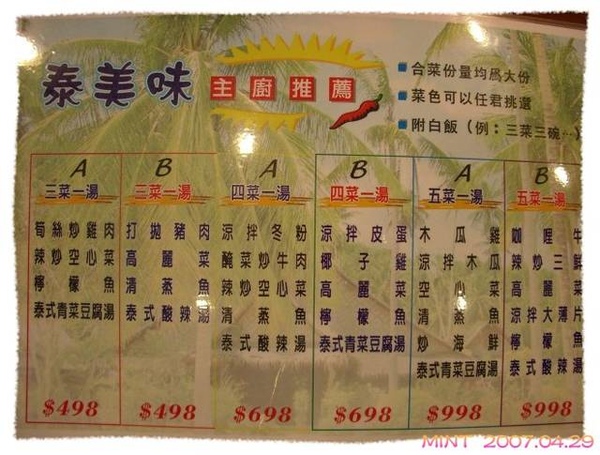 泰美味
主廚推薦
合菜份量均爲大份
菜色可以任君挑選
附白飯(例:三菜三碗…)
A
三菜一湯
筍絲炒雞肉
辣炒空心菜
檸檬魚
泰式青菜豆腐湯
$498
B
三菜一湯
打拋豬肉
高麗菜
清蒸魚
泰式酸辣湯
$498
A
四菜一湯
涼拌冬粉
醃菜炒牛肉
辣炒空心菜
清蒸魚
泰式酸辣湯
$698
B
四菜一湯
涼拌皮蛋
椰子雞
高麗菜
檸檬魚
泰式青菜豆腐湯
$698
A
五菜一湯
木瓜雞
涼拌木瓜
空心菜
清蒸魚
炒海鮮
泰式青菜豆腐湯
$998
B
五菜一湯
咖哩牛
辣炒三鮮
高麗菜
涼拌大薄片
檸檬魚
泰式酸辣湯
$998
MINT 2007.04.29